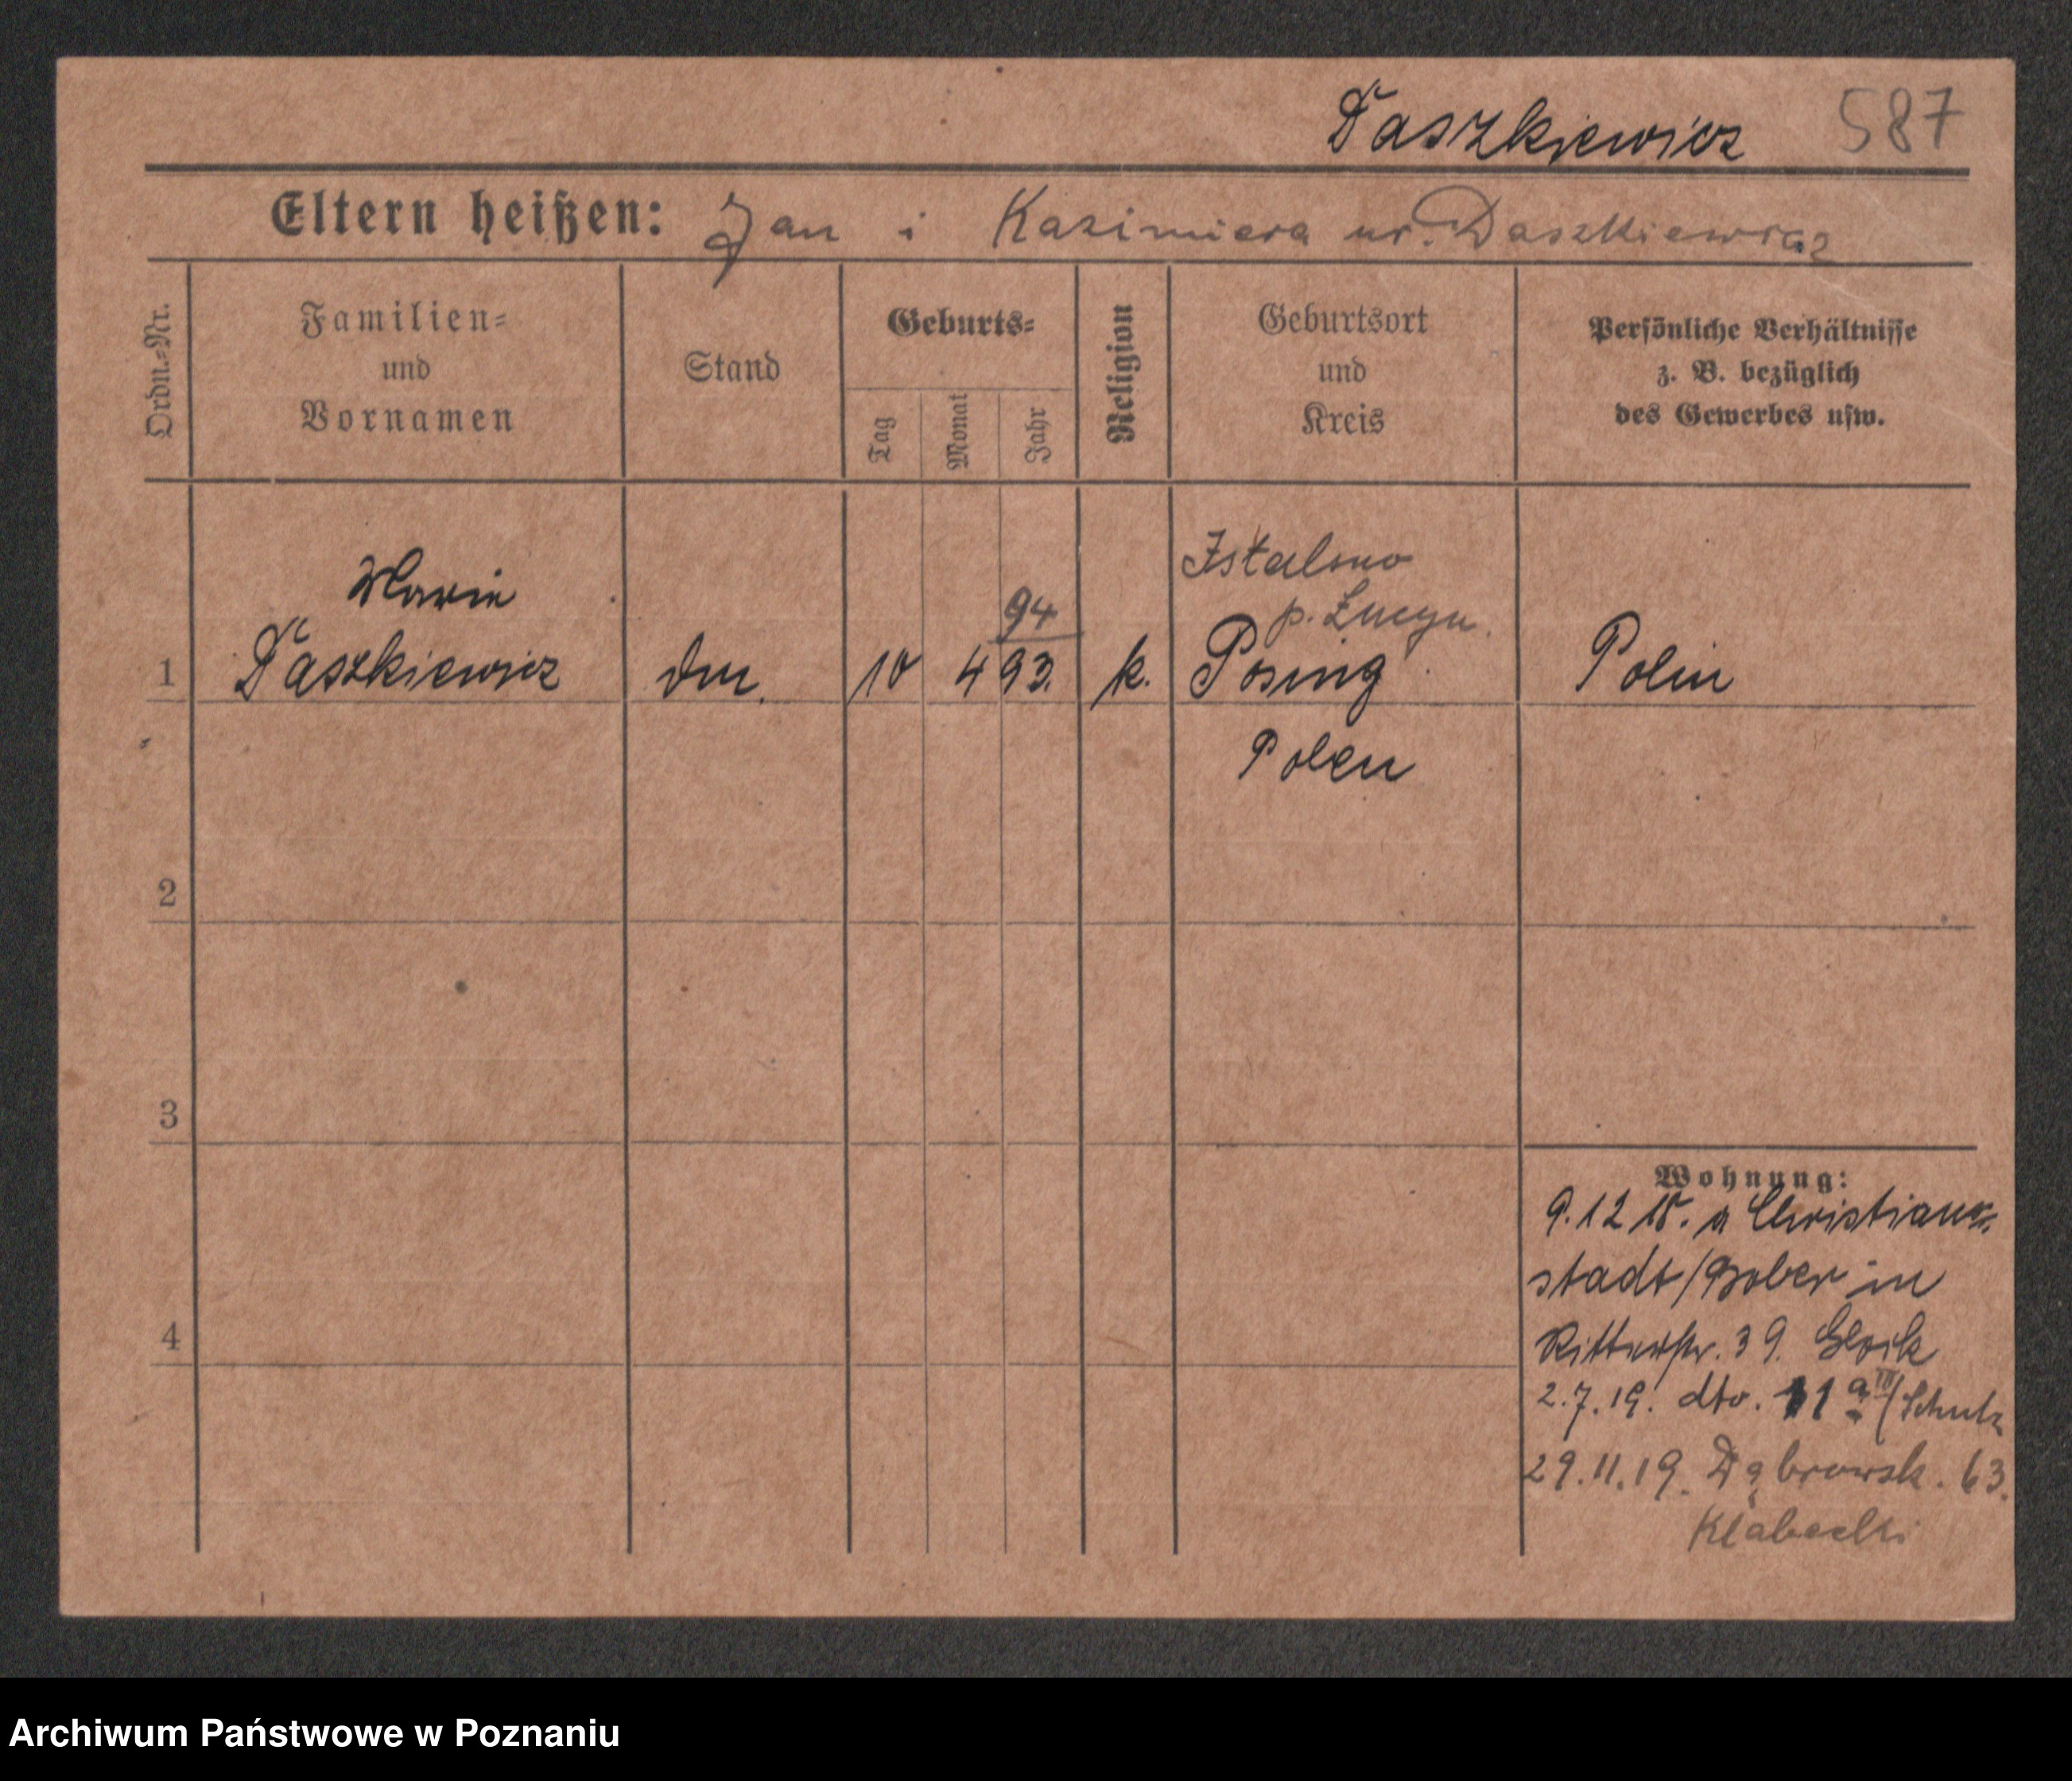 Daszkiewicz 587
Eltern heißen: Jan i Kazimiera ur. Daszkiewicz
Ordn.=Nr.
Familien=
und
Vornamen
Stand
Geburts=
Tag
Monat
Jahr
Religion
Geburtsort
und
Kreis
Persönliche Verhältnisse
z. B. bezüglich
des Gewerbes usw.
Marie
94
p.
1 Daszkiewicz 10 4 93. k. Polin
Polen
2
3
4
Wohnung:
9.12 18. a Christian-
stadt/Bober in
Ritterstr. 39.
2.7.19. dto. 11a III/Schulz
29.11.19. Dąbrowsk. 63.
Archiwum Państwowe w Poznaniu